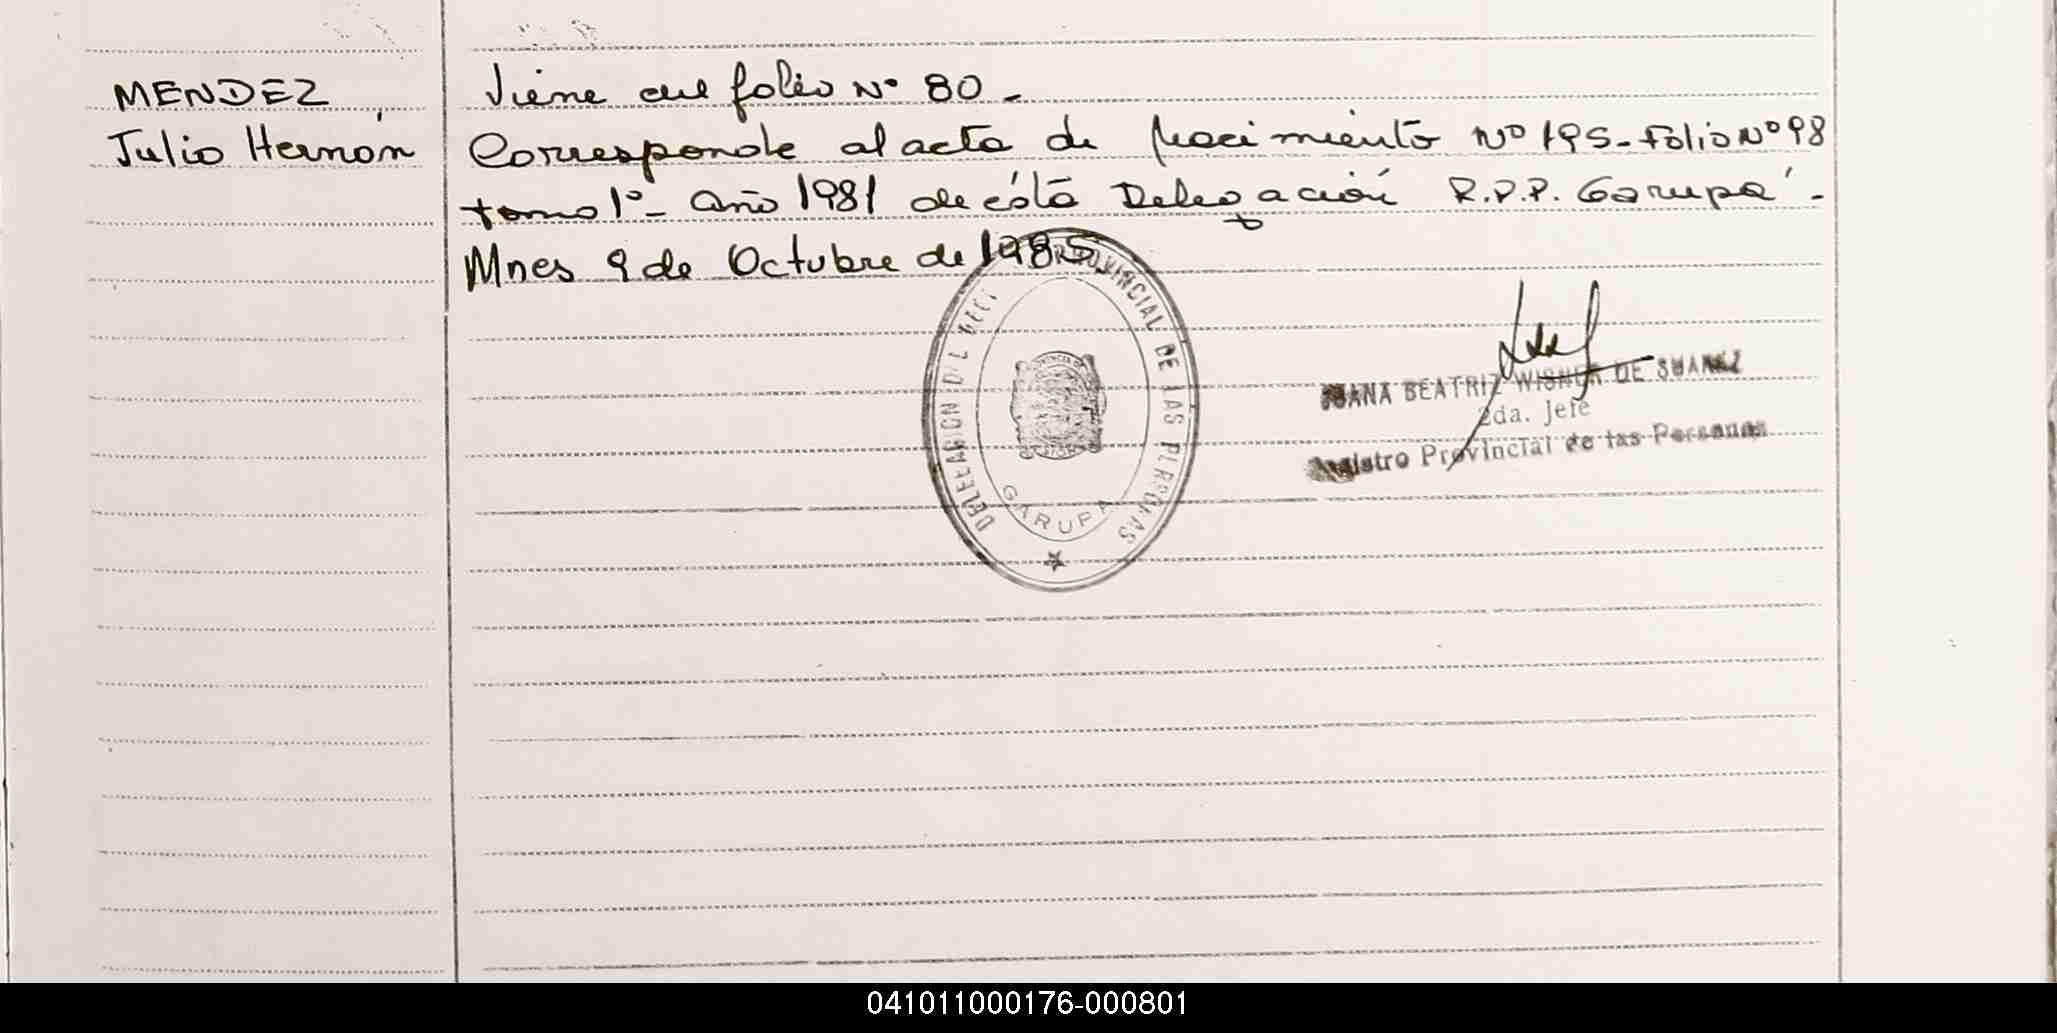 MENDEZ
Julio Hernán
Viene del folio Nº 80 -
Corresponde al acta de Nacimiento Nº 195 - Folio Nº 98
tomo 1º - Año 1981 de ésta Delegación R.P.P. Garupá -
Mnes 9 de Octubre de 1985.
PROVINCIAL DE LAS PERSONAS
GARUPA
JUANA BEATRIZ WISNER DE SUAREZ
2da. Jefe
Registro Provincial de las Personas
041011000176-000801